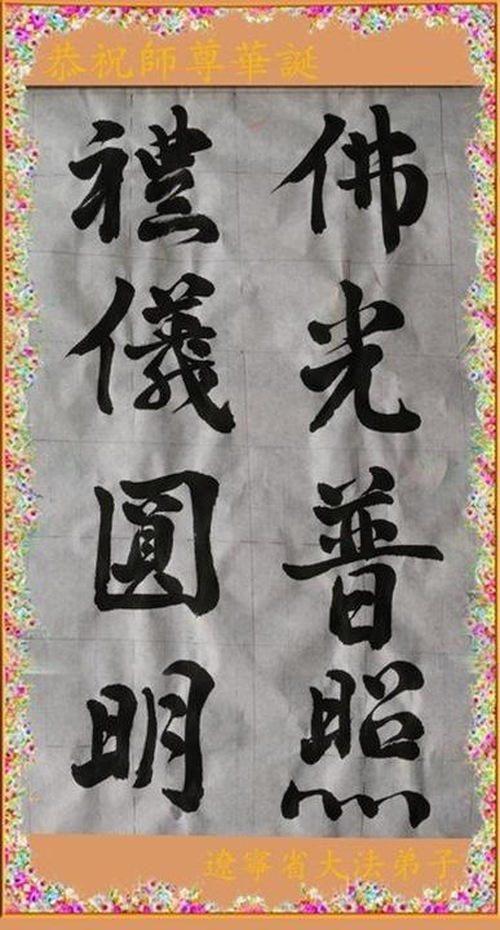 恭祝師尊華誕
佛光普照
禮儀圓明
遼寧省大法弟子